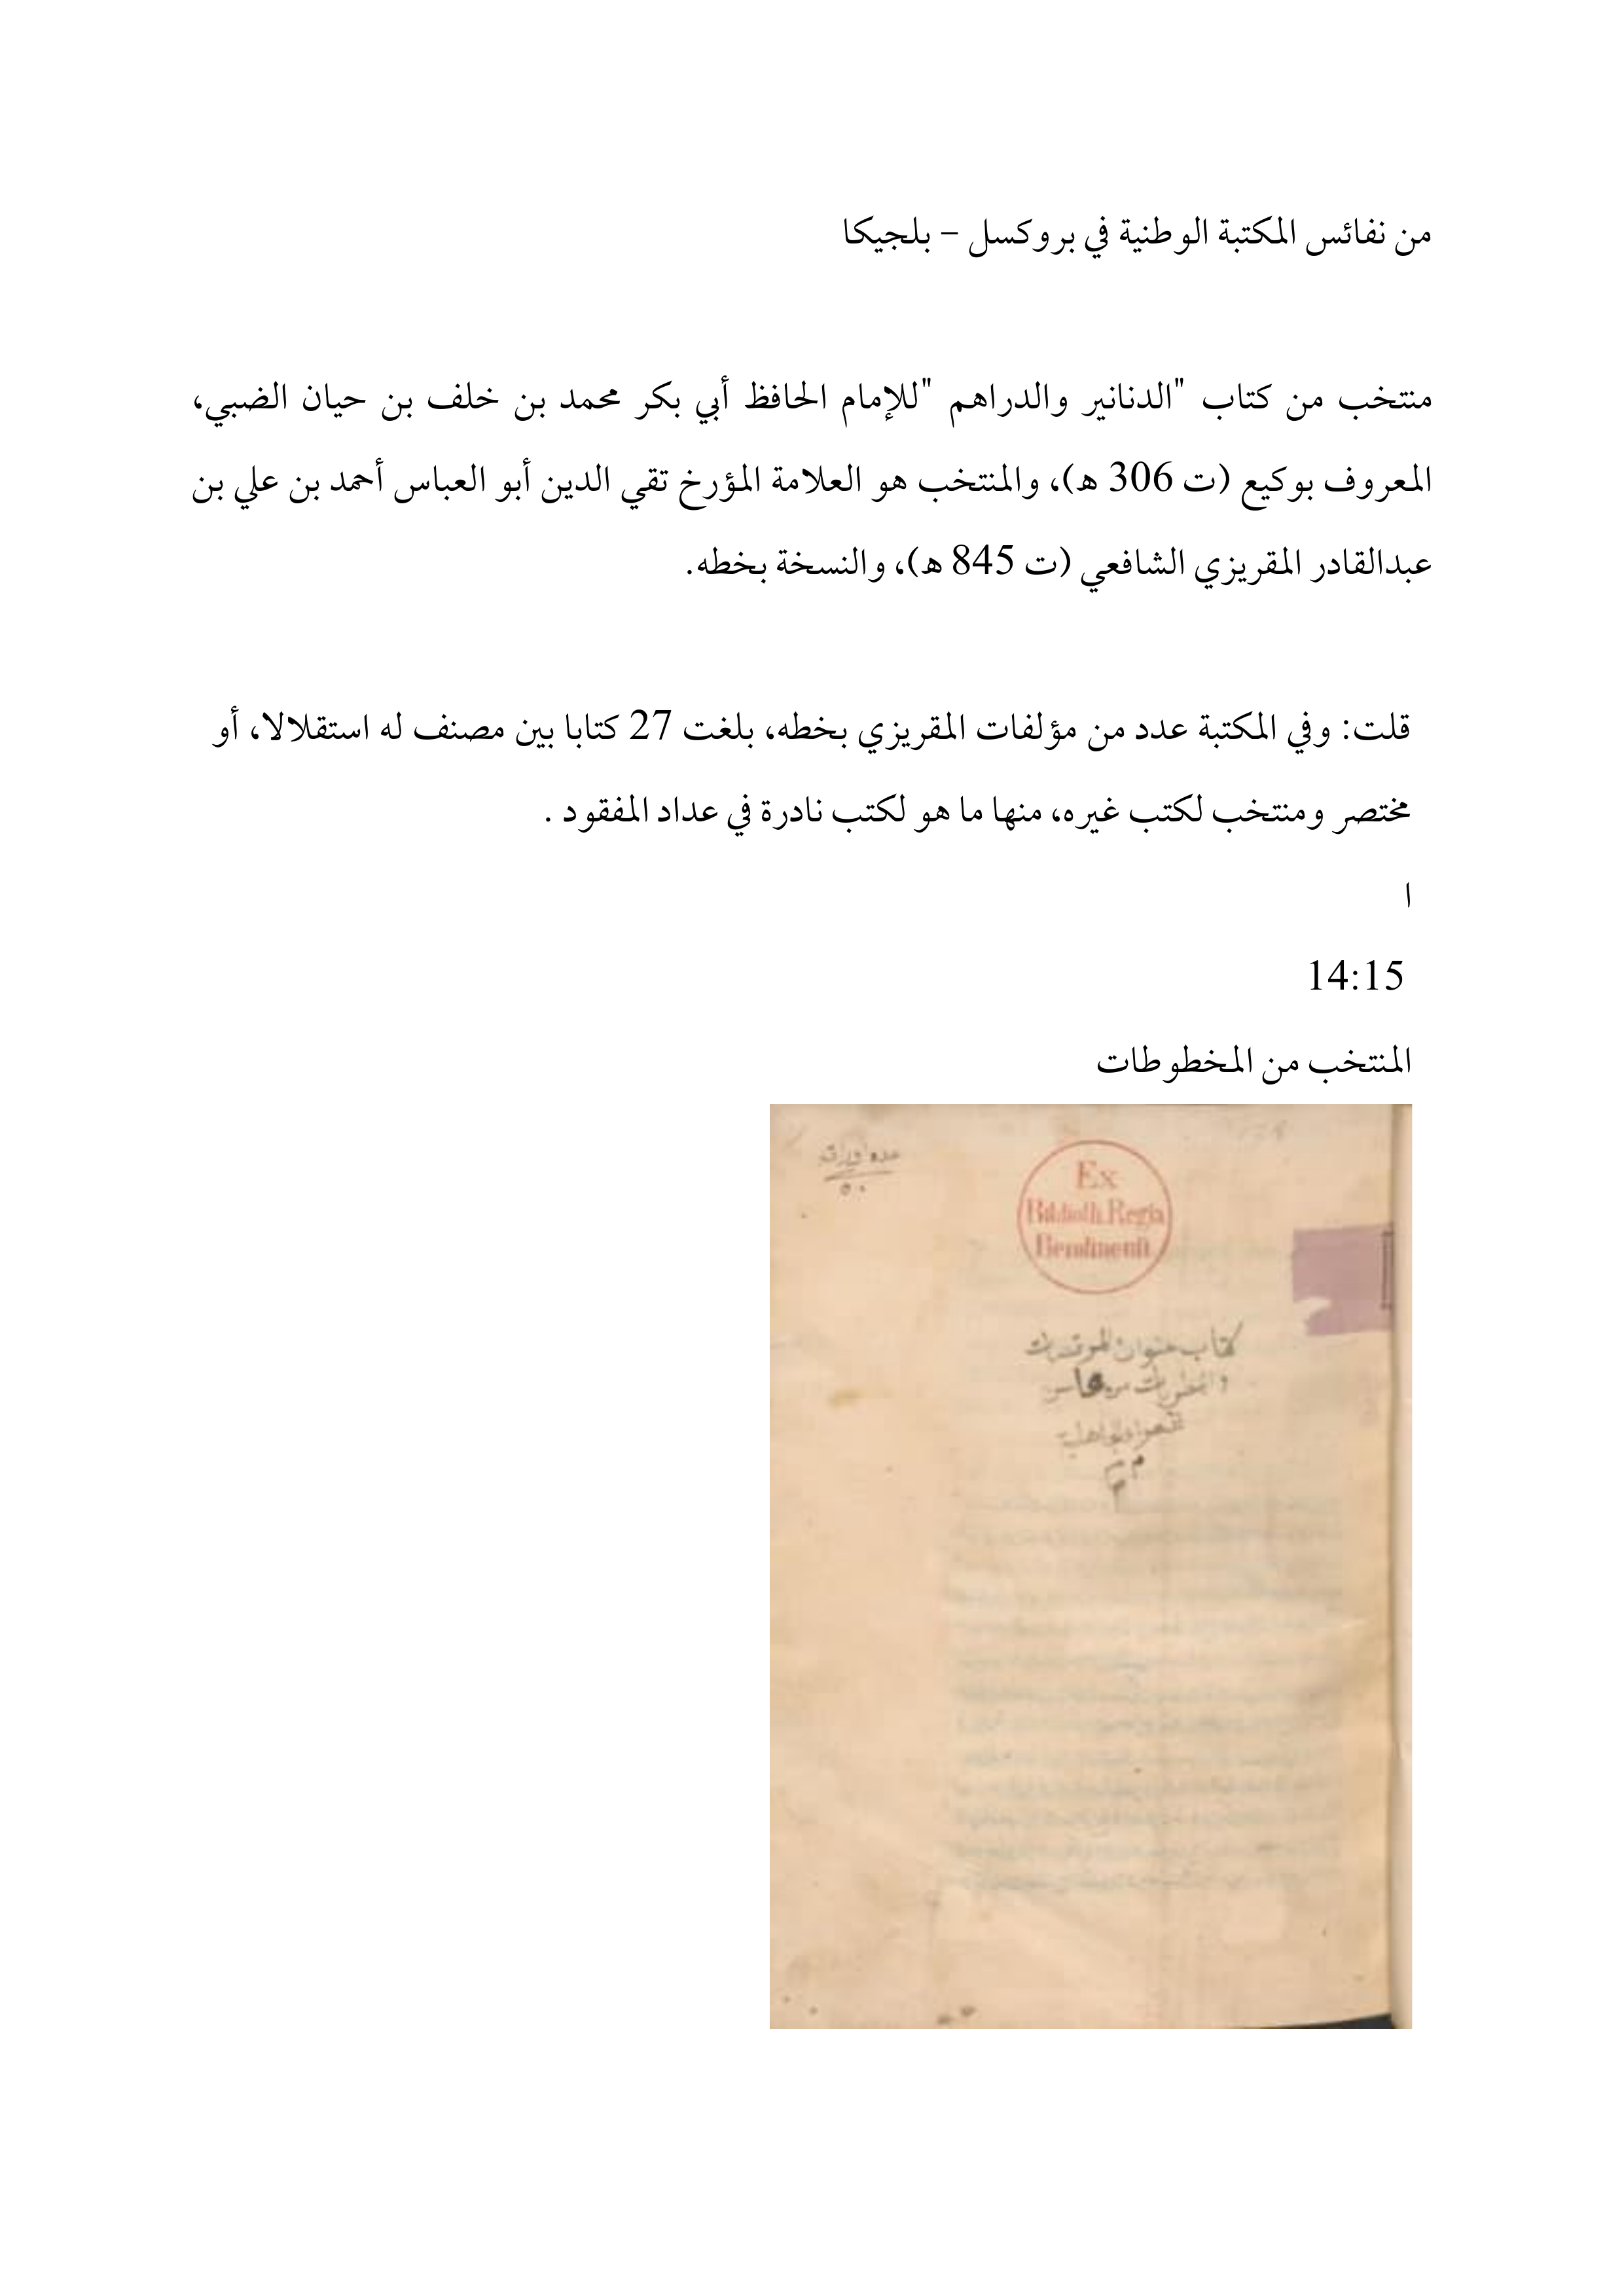 من نفائس المكتبة الوطنية في بروكسل – بلجيكا
منتخب من كتاب "الدنانير والدراهم "للإمام الحافظ أبي بكر محمد بن خلف بن حيان الضبي،
المعروف بوكيع (ت 306 ه)، والمنتخب هو العلامة المؤرخ تقي الدين أبو العباس أحمد بن علي بن
عبدالقادر المقريزي الشافعي (ت 845 ه)، والنسخة بخطه.
قلت: وفي المكتبة عدد من مؤلفات المقريزي بخطه، بلغت 27 كتابا بين مصنف له استقلالا، أو
مختصر ومنتخب لكتب غيره، منها ما هو لكتب نادرة في عداد المفقود .
ا
14:15
المنتخب من المخطوطات
عدد اوراقه
٥٠
Ex
Biblioth. Regia
Berolinensi
كتاب عنوان المرقصات
والمطربات من
شعراء الجاهلية